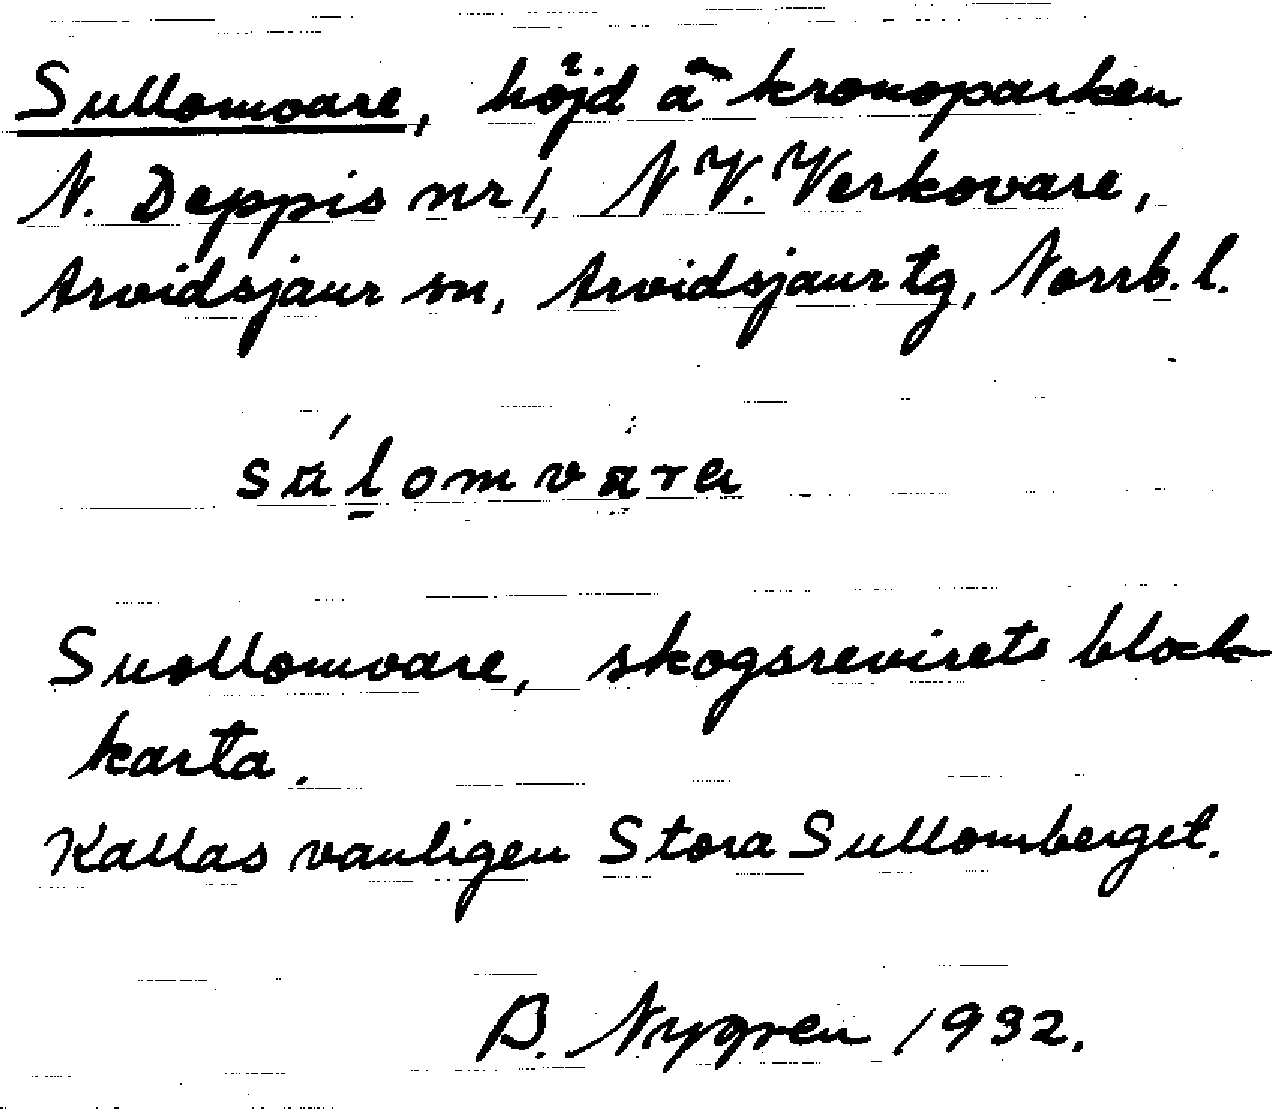 Sullomvare, höjd å kronoparken
N. Deppis nr 1, NV. Verkovare,
Arvidsjaur sn, Arvidsjaur tg, Norrb. l.
sálomvara
Suollomvare, skogsrevirets block
karta.
Kallas vanligen Stora Sullomberget.
B. Nygren 1932.